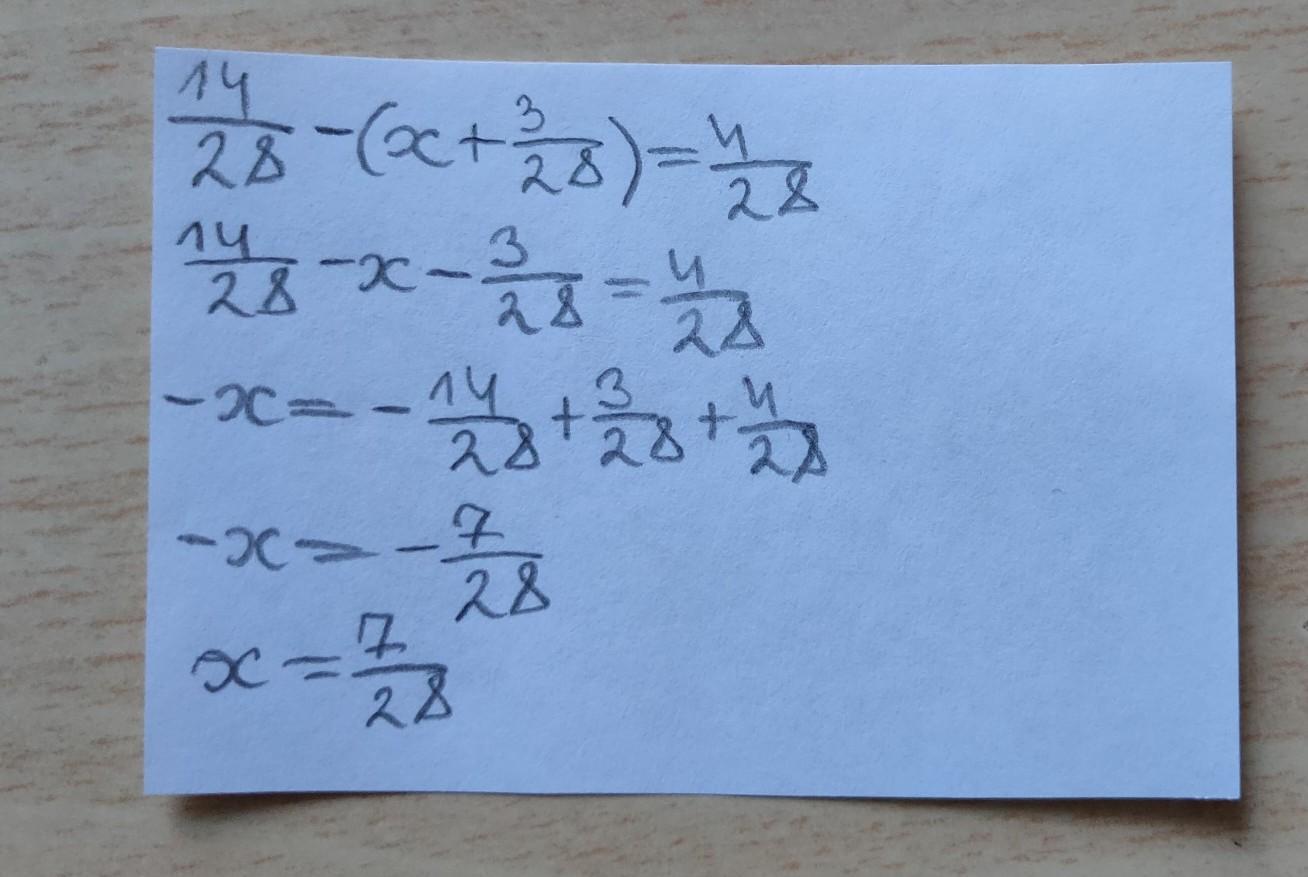 14/28 - (x + 3/28) = 4/28
14/28 - x - 3/28 = 4/28
-x = - 14/28 + 3/28 + 4/28
-x = - 7/28
x = 7/28